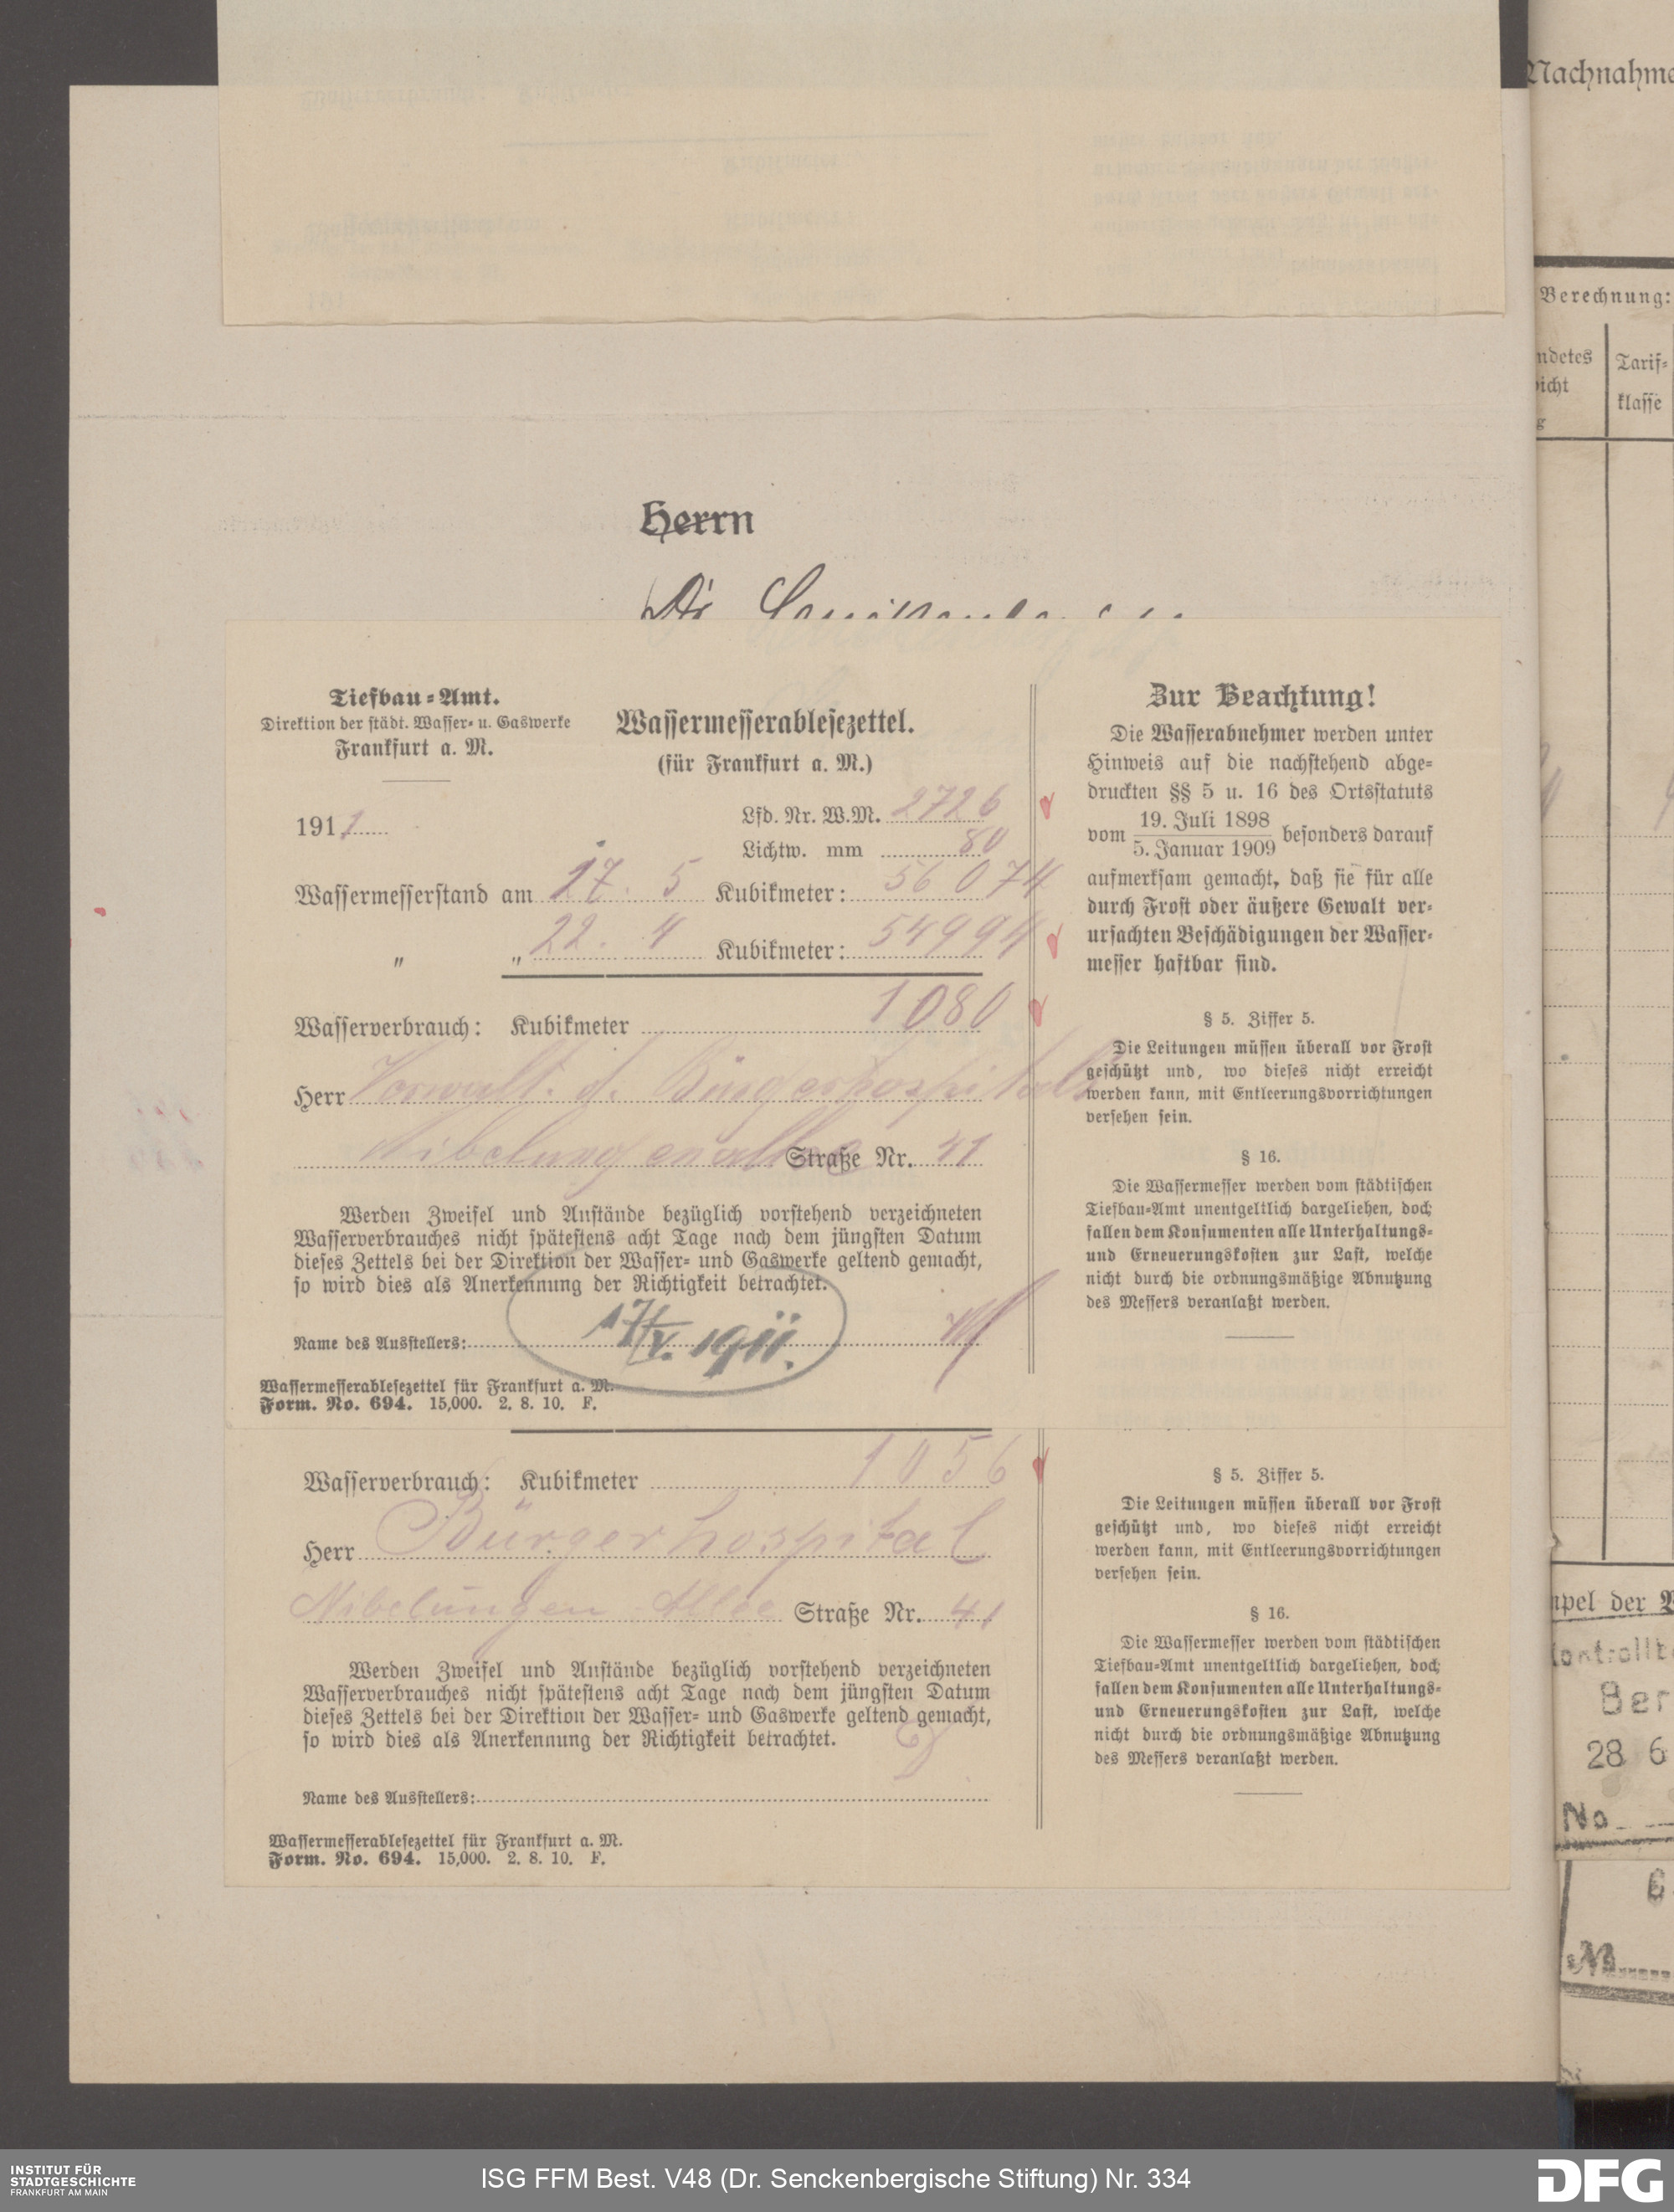 Herrn
Tiefbau-Amt.
Direktion der städt. Wasser- u. Gaswerke
Frankfurt a. M.
Wassermesserablesezettel.
(für Frankfurt a. M.)
1911
Lfd. Nr. W.M. 2726
Lichtw. mm 80
Wassermesserstand am 17. 5 Kubikmeter: 56074
" " 22. 4 Kubikmeter: 54994
Wasserverbrauch: Kubikmeter 1080
Herr Verwalt. d. Bürgerhospitals
Nibelungenallee Straße Nr. 41
Werden Zweifel und Anstände bezüglich vorstehend verzeichneten
Wasserverbrauches nicht spätestens acht Tage nach dem jüngsten Datum
dieses Zettels bei der Direktion der Wasser- und Gaswerke geltend gemacht,
so wird dies als Anerkennung der Richtigkeit betrachtet.
17/V. 1911.
Name des Ausstellers:
Wassermesserablesezettel für Frankfurt a. M.
Form. No. 694. 15,000. 2. 8. 10. F.
Zur Beachtung!
Die Wasserabnehmer werden unter
Hinweis auf die nachstehend abge-
druckten §§ 5 u. 16 des Ortsstatuts
vom 19. Juli 1898
5. Januar 1909 besonders darauf
aufmerksam gemacht, daß sie für alle
durch Frost oder äußere Gewalt ver-
ursachten Beschädigungen der Wasser-
messer haftbar sind.
§ 5. Ziffer 5.
Die Leitungen müssen überall vor Frost
geschützt und, wo dieses nicht erreicht
werden kann, mit Entleerungsvorrichtungen
versehen sein.
§ 16.
Die Wassermesser werden vom städtischen
Tiefbau-Amt unentgeltlich dargeliehen, doch
fallen dem Konsumenten alle Unterhaltungs-
und Erneuerungskosten zur Last, welche
nicht durch die ordnungsmäßige Abnutzung
des Messers veranlaßt werden.
Wasserverbrauch: Kubikmeter 1056
Herr Bürgerhospital
Nibelungen Allee Straße Nr. 41
Werden Zweifel und Anstände bezüglich vorstehend verzeichneten
Wasserverbrauches nicht spätestens acht Tage nach dem jüngsten Datum
dieses Zettels bei der Direktion der Wasser- und Gaswerke geltend gemacht,
so wird dies als Anerkennung der Richtigkeit betrachtet.
Name des Ausstellers:
Wassermesserablesezettel für Frankfurt a. M.
Form. No. 694. 15,000. 2. 8. 10. F.
§ 5. Ziffer 5.
Die Leitungen müssen überall vor Frost
geschützt und, wo dieses nicht erreicht
werden kann, mit Entleerungsvorrichtungen
versehen sein.
§ 16.
Die Wassermesser werden vom städtischen
Tiefbau-Amt unentgeltlich dargeliehen, doch
fallen dem Konsumenten alle Unterhaltungs-
und Erneuerungskosten zur Last, welche
nicht durch die ordnungsmäßige Abnutzung
des Messers veranlaßt werden.
Nachnahme
Berechnung:
ndetes
icht
g
Tarif-
klasse
pel der
Kontrollt
Ber
28 6
No
INSTITUT FÜR
STADTGESCHICHTE
FRANKFURT AM MAIN
ISG FFM Best. V48 (Dr. Senckenbergische Stiftung) Nr. 334
DFG